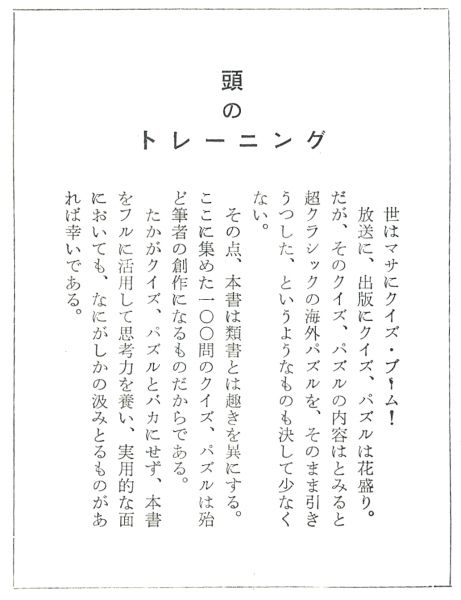 頭
の
トレーニング
世はマサにクイズ・ブーム!
放送に、出版にクイズ、パズルは花盛り。
だが、そのクイズ、パズルの内容はとみると
超クラシックの海外パズルを、そのまま引き
うつした、というようなものも決して少なく
ない。
その点、本書は類書とは趣きを異にする。
ここに集めた一〇〇問のクイズ、パズルは殆
ど筆者の創作になるものだからである。
たかがクイズ、パズルとバカにせず、本書
をフルに活用して思考力を養い、実用的な面
においても、なにがしかの汲みとるものがあ
れば幸いである。